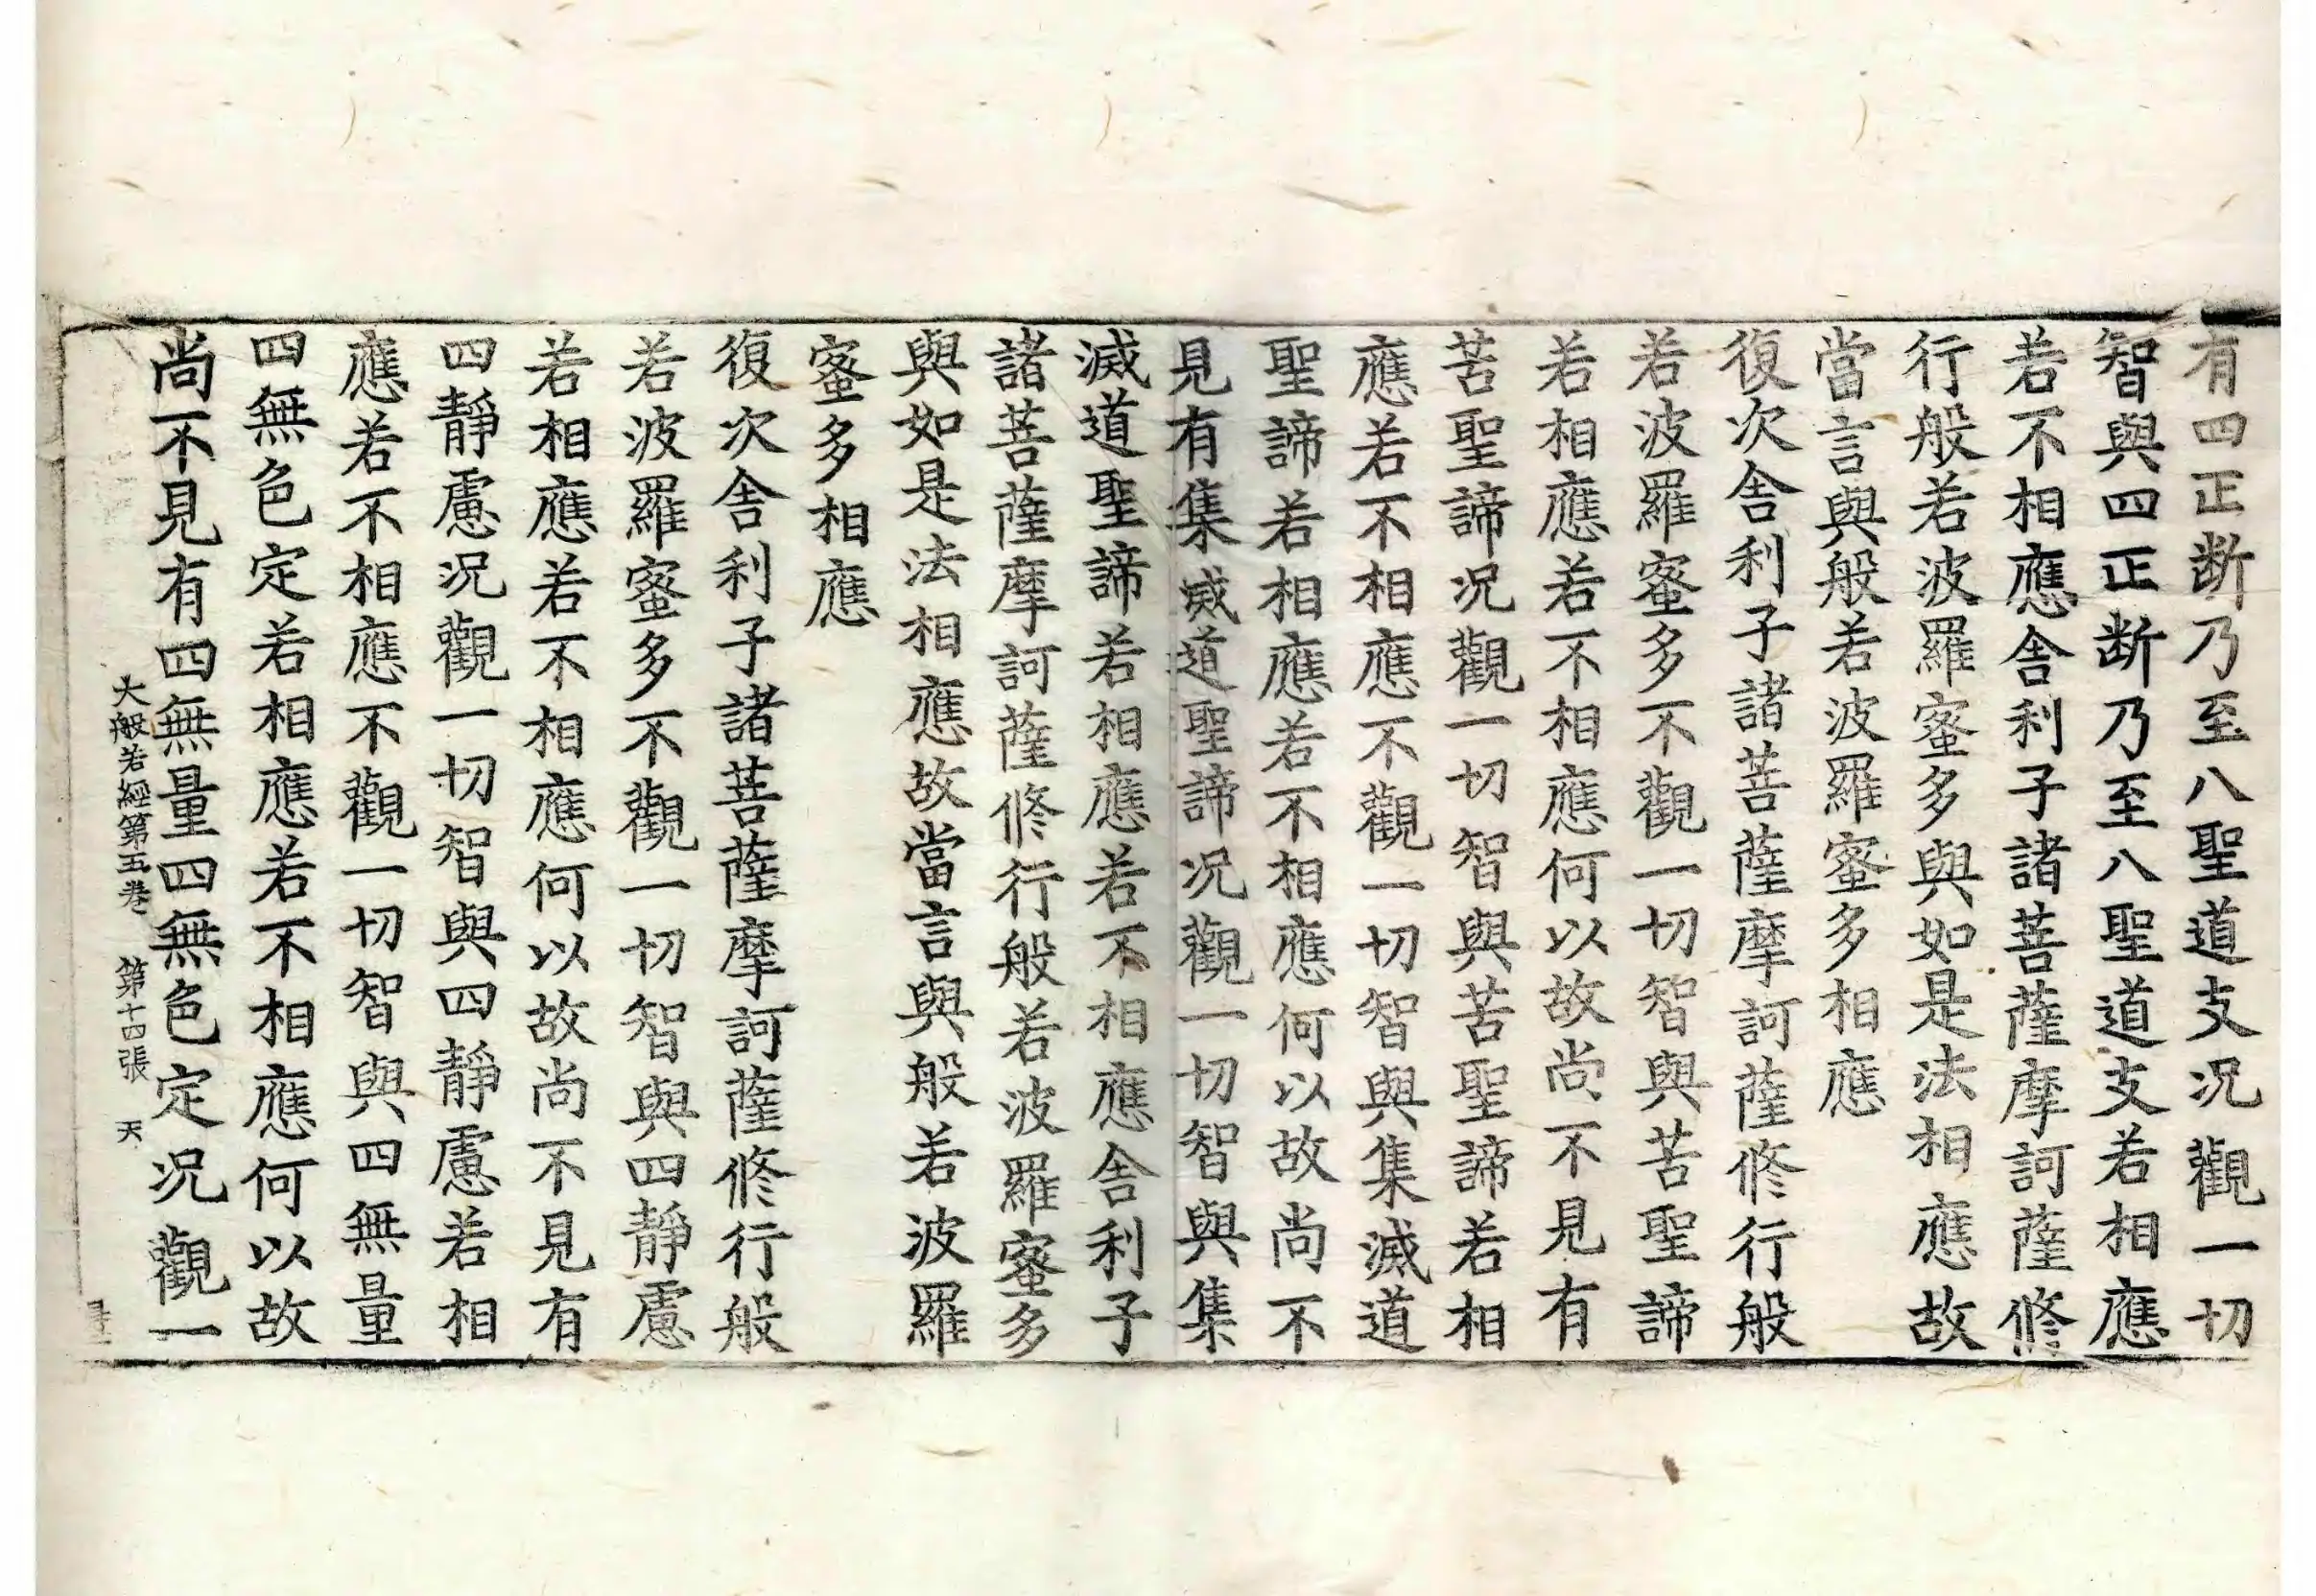 有四正断乃至八聖道支况觀一切
智與四正断乃至八聖道支若相應
若不相應舎利子諸菩薩摩訶薩修
行般若波羅蜜多與如是法相應故
當言與般若波羅蜜多相應
復次舎利子諸菩薩摩訶薩修行般
若波羅蜜多不觀一切智與苦聖諦
若相應若不相應何以故尚不見有
苦聖諦况觀一切智與苦聖諦若相
應若不相應不觀一切智與集滅道
聖諦若相應若不相應何以故尚不
見有集滅道聖諦况觀一切智與集
滅道聖諦若相應若不相應舎利子
諸菩薩摩訶薩修行般若波羅蜜多
與如是法相應故當言與般若波羅
蜜多相應
復次舎利子諸菩薩摩訶薩修行般
若波羅蜜多不觀一切智與四靜慮
若相應若不相應何以故尚不見有
四靜慮况觀一切智與四靜慮若相
應若不相應不觀一切智與四無量
四無色定若相應若不相應何以故
尚不見有四無量四無色定况觀一
大般若經第五卷 第十四張 天